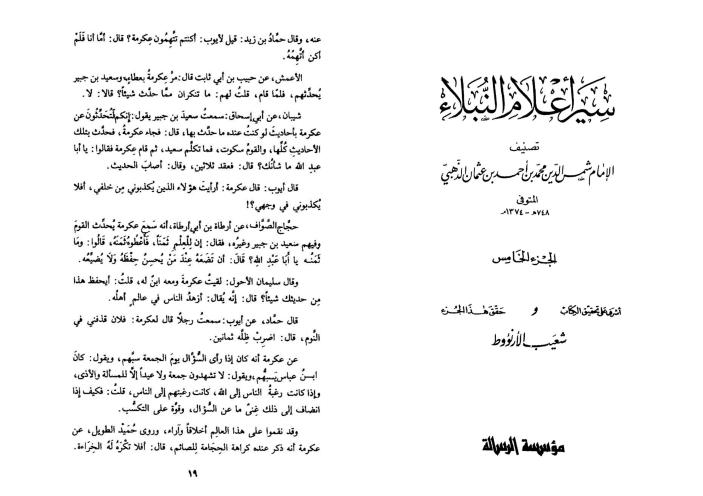 سير أعلام النبلاء
تصنيف
الإمام شمس الدين محمد بن أحمد بن عثمان الذهبي
المتوفى
٧٤٨هـ - ١٣٧٤م
الجزء الخامس
أشرف على تحقيق الكتاب و حقق هذا الجزء
شعيب الأرنؤوط
مؤسسة الرسالة
عنه، وقال حمَّادُ بن زيد: قيل لأيوب: أكنتم تتَّهمون عِكرمة؟ قال: أمَّا أنا فَلَمْ
أكن أتَّهِمُهُ.
الأعمش، عن حبيب بن أبي ثابت قال: مرَّ عِكرمةُ بعطاءٍ، وسعيد بن جبير
يُحدِّثهم، فلمَّا قام، قلتُ لهم: ما تنكران ممَّا حدَّث شيئاً؟ قالا: لا.
شيبان، عن أبي إسحاق: سمعتُ سعيدَ بن جبير يقول: إنكم لَتُحدِّثُونَ عن
عكرمة بأحاديثَ لو كنتُ عنده ما حدَّث بها، قال: فجاء عكرمةُ، فحدَّث بتلك
الأحاديثِ كُلِّها، والقومُ سكوت، فما تكلَّم سعيد، ثم قام عِكرمة فقالوا: يا أبا
عبدِ الله ما شأنُك؟ قال: فعقد ثلاثين، وقال: أصابَ الحديث.
قال أيوب: قال عكرمة: أرأيتَ هؤلاء الذين يُكذبوني مِن خلفي، أفلا
يُكذبوني في وجهي؟!
حجَّاج الصَّوَّاف، عن أرطاة بن أبي أرطاة، أنه سَمِعَ عكرمةَ يُحدِّث القومَ
وفيهم سَعيد بن جبير وغيرُه، فقال: إن لِلْعِلْمِ ثَمَناً، فَأَعْطُوهُ ثَمَنَهُ، قَالُوا: وَمَا
ثَمَنُه يا أَبَا عَبْدِ الله؟ قَالَ: أن تَضَعَهُ عِنْدَ مَنْ يُحسِنُ حِفْظَهُ وَلَا يُضَيِّعُه.
وقال سليمان الأحول: لقيتُ عكرمةَ ومعه ابنٌ له، قلتُ: أيحفظ هذا
مِن حديثك شيئاً؟ قال: إنَّه يُقال: أزهدُ الناس في عالمٍ أهلُه.
قال حمَّاد، عن أيوب: سمعتُ رجلًا قال لعكرمة: فلان قذفني في
النَّوم، قال: اضرِبْ ظِلَّه ثمانين.
عن عكرمة أنه كان إذا رأى السُّؤال يومَ الجمعة سبَّهم، ويقول: كانَ
ابنُ عباسٍ يَسبُّهم، ويقول: لا تشهدون جمعة ولا عيداً إلَّا للمسألة والأذى،
وإذا كانت رغبةُ الناس إلى الله، كانت رغبتهم إلى الناس، قلتُ: فكيف إذا
انضاف إلى ذلك غِنىً ما عن السُّؤال، وقوَّة على التكسُّب.
وقد نقموا على هذا العالِم أخلاقاً وآراء، وروى حُميد الطويل، عن
عكرمة أنه ذكر عنده كراهة الحِجَامة للصائم، قال: أفلا تَكْرَهُ لَهُ الخِرَاءة.
١٩